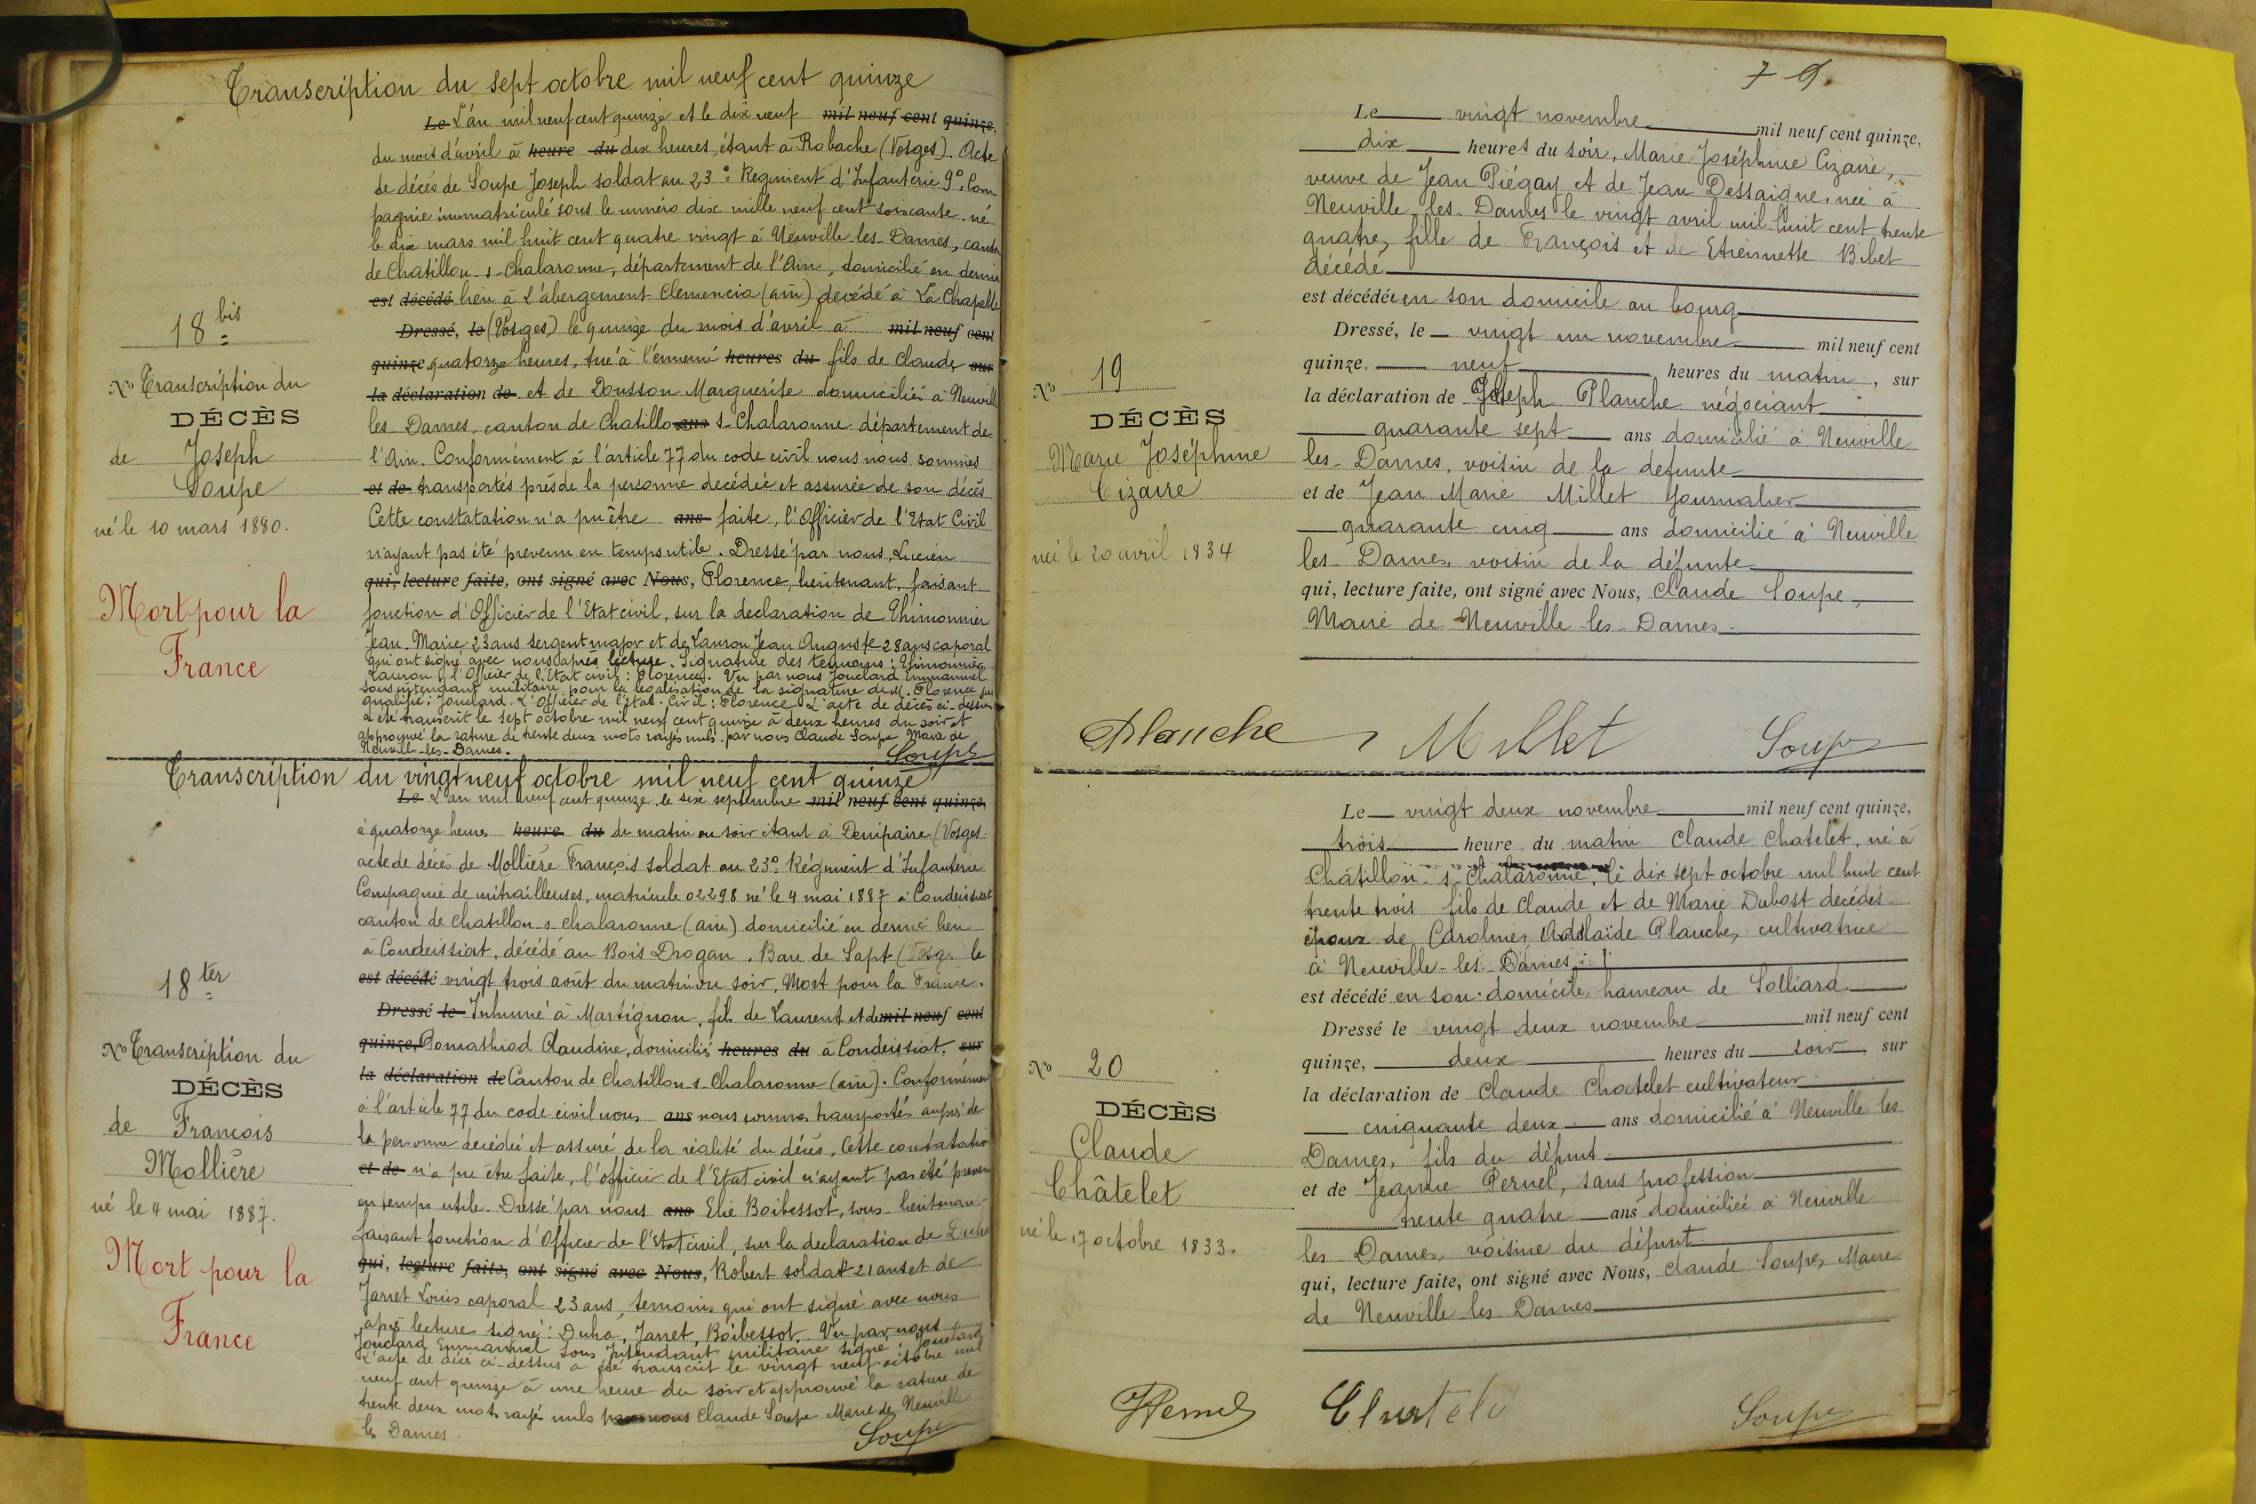 Transcription du sept octobre mil neuf cent quinze
18 bis
No Transcription du
DÉCÈS
de Joseph
Soupe
né le 10 mars 1880.
Mort pour la
France
Le L'an mil neuf cent quinze et le dix neuf mil neuf cent quinze,
du mois d'avril à heure du dix heures, étant à Robache (Vosges). Acte
de décès de Soupe Joseph soldat au 23e Régiment d'Infanterie 9e Com
pagnie immatriculé sous le numéro dix mille neuf cent soixante. né
le dix mars mil huit cent quatre vingt à Neuville-les-Dames, canton
de Chatillon-s-Chalaronne, département de l'Ain, domicilié en dernier
est décédé lieu à L'abergement Clemencia (ain) décédé à La Chapelle
Dressé, le (Vosges) le quinze du mois d'avril à mil neuf cent
quinze, quatorze heures, tué à l'ennemi heures du fils de Claude, sur
la déclaration de et de Dousson Marguerite domiciliés à Neuville
les-Dames, canton de Chatillo ans s-Chalaronne département de
l'Ain. Conformément à l'article 77 du code civil nous nous sommes
et de transportés près de la personne décédée et assurée de son décès
Cette constatation n'a pu être ans faite, l'Officier de l'Etat Civil
n'ayant pas été prevenu en temps utile. Dressé par nous, Lucien
qui, lecture faite, ont signé avec Nous, Florence, lieutenant, faisant
fonction d'Officier de l'Etat civil, sur la declaration de Thimonnier
Jean-Marie 23 ans sergent major et de Lauron Jean Auguste 28 ans caporal
qui ont signé avec nous après lecture. Signature des temoins: Thimonnier
Lauron, l'Officier de l'Etat civil: Florence. Vu par nous Jouclard Emmanuel
sous intendant militaire pour la légalisation de la signature de M. Florence
qualifié: Jouclard. L'Officier de l'état-Civil: Florence L'acte de décès ci-dessus
a été transcrit le sept octobre mil neuf cent quinze à deux heures du soir et
approuvé la rature de trente deux mots rayés nuls. par nous Claude Soupe Maire de
Neuville-les-Dames.
Soupe
Transcription du vingt neuf octobre mil neuf cent quinze
18 ter
No Transcription du
DÉCÈS
de François
Mollière
né le 4 mai 1887.
Mort pour la
France
Le L'an mil neuf cent quinze le six septembre mil neuf cent quinze,
à quatorze heures heure du du matin ou soir étant à Denipaire (Vosges
acte de décès de Mollière François soldat au 23e Régiment d'Infanterie
Compagnie de mitrailleuses, matricule 02298 né le 4 mai 1887 à Condeissiat
canton de Chatillon-s-Chalaronne (ain) domicilié en dernier lieu
à Condeissiat, décédé au Bois Drogan. Ban de Sapt (Vosges le
est décédé vingt trois août du matin ou soir, Mort pour la France.
Dressé le Inhumé à Martignon, fils de Laurent et de mil neuf cent
quinze, Pomathiod Claudine, domiciliés heures du à Condeissiat, sur
la déclaration de Canton de Chatillon-s-Chalaronne (ain). Conformément
à l'article 77 du code civil nous ans nous sommes transportés auprès de
la personne decédée et assuré de la réalité du décès. Cette constatation
et de n'a pu être faite, l'officier de l'Etat civil n'ayant pas été preven
en temps utile. Dressé par nous ans Elie Boibessot, sous-lieutenan
faisant fonction d'Officier de l'Etat civil, sur la declaration de Duha
qui, lecture faite, ont signé avec Nous, Robert soldat 21 ans et de
Jarret Louis caporal 23 ans, temoins qui ont signé avec nous
après lecture signé: Duha, Jarret, Boibessot. Vu par nous
Jouclard Emmanuel Sous Intendant militaire signé: Jouclard
L'acte de décès ci-dessus a été transcrit le vingt neuf octobre mil
neuf cent quinze à une heure du soir et approuvé la rature de
trente deux mots rayés nuls par nous Claude Soupe Maire de Neuville
les Dames.
Soupe
79.
No 19
DÉCÈS
Marie Joséphine
Cizaire
née le 20 avril 1834
Le vingt novembre mil neuf cent quinze,
dix heures du soir, Marie Joséphine Cizaire,
veuve de Jean Piégay et de Jean Dessaigne, née à
Neuville-les-Dames le vingt avril mil huit cent trente
quatre, fille de François et de Etiennette Bibet
décédé
est décédée en son domicile au bourg
Dressé, le vingt un novembre mil neuf cent
quinze, neuf heures du matin, sur
la déclaration de Joseph Planche négociant
quarante sept ans domicilié à Neuville
les-Dames, voisin de la defunte
et de Jean Marie Millet Journalier
quarante cinq ans domicilié à Neuville
les-Dames, voisin de la défunte
qui, lecture faite, ont signé avec Nous, Claude Soupe,
Maire de Neuville-les-Dames
Planche Millet Soupe
No 20
DÉCÈS
Claude
Châtelet
né le 17 octobre 1833.
Le vingt deux novembre mil neuf cent quinze,
trois heure du matin Claude Chatelet, né à
Châtillon-s-Chalaronne, le dix sept octobre mil huit cent
trente trois fils de Claude et de Marie Dubost décédés
époux de Caroline, Adélaïde Planche, cultivatrice
à Neuville-les-Dames
est décédé en son domicile, hameau de Solliard
Dressé le vingt deux novembre mil neuf cent
quinze, deux heures du soir, sur
la déclaration de Claude Chatelet cultivateur
cinquante deux ans domicilié à Neuville les
Dames, fils du défunt
et de Jeanne Pernel, sans profession
trente quatre ans domiciliée à Neuville
les Dames, voisine du défunt
qui, lecture faite, ont signé avec Nous, Claude Soupe, Maire
de Neuville-les Dames
JPernel Chatelet Soupe